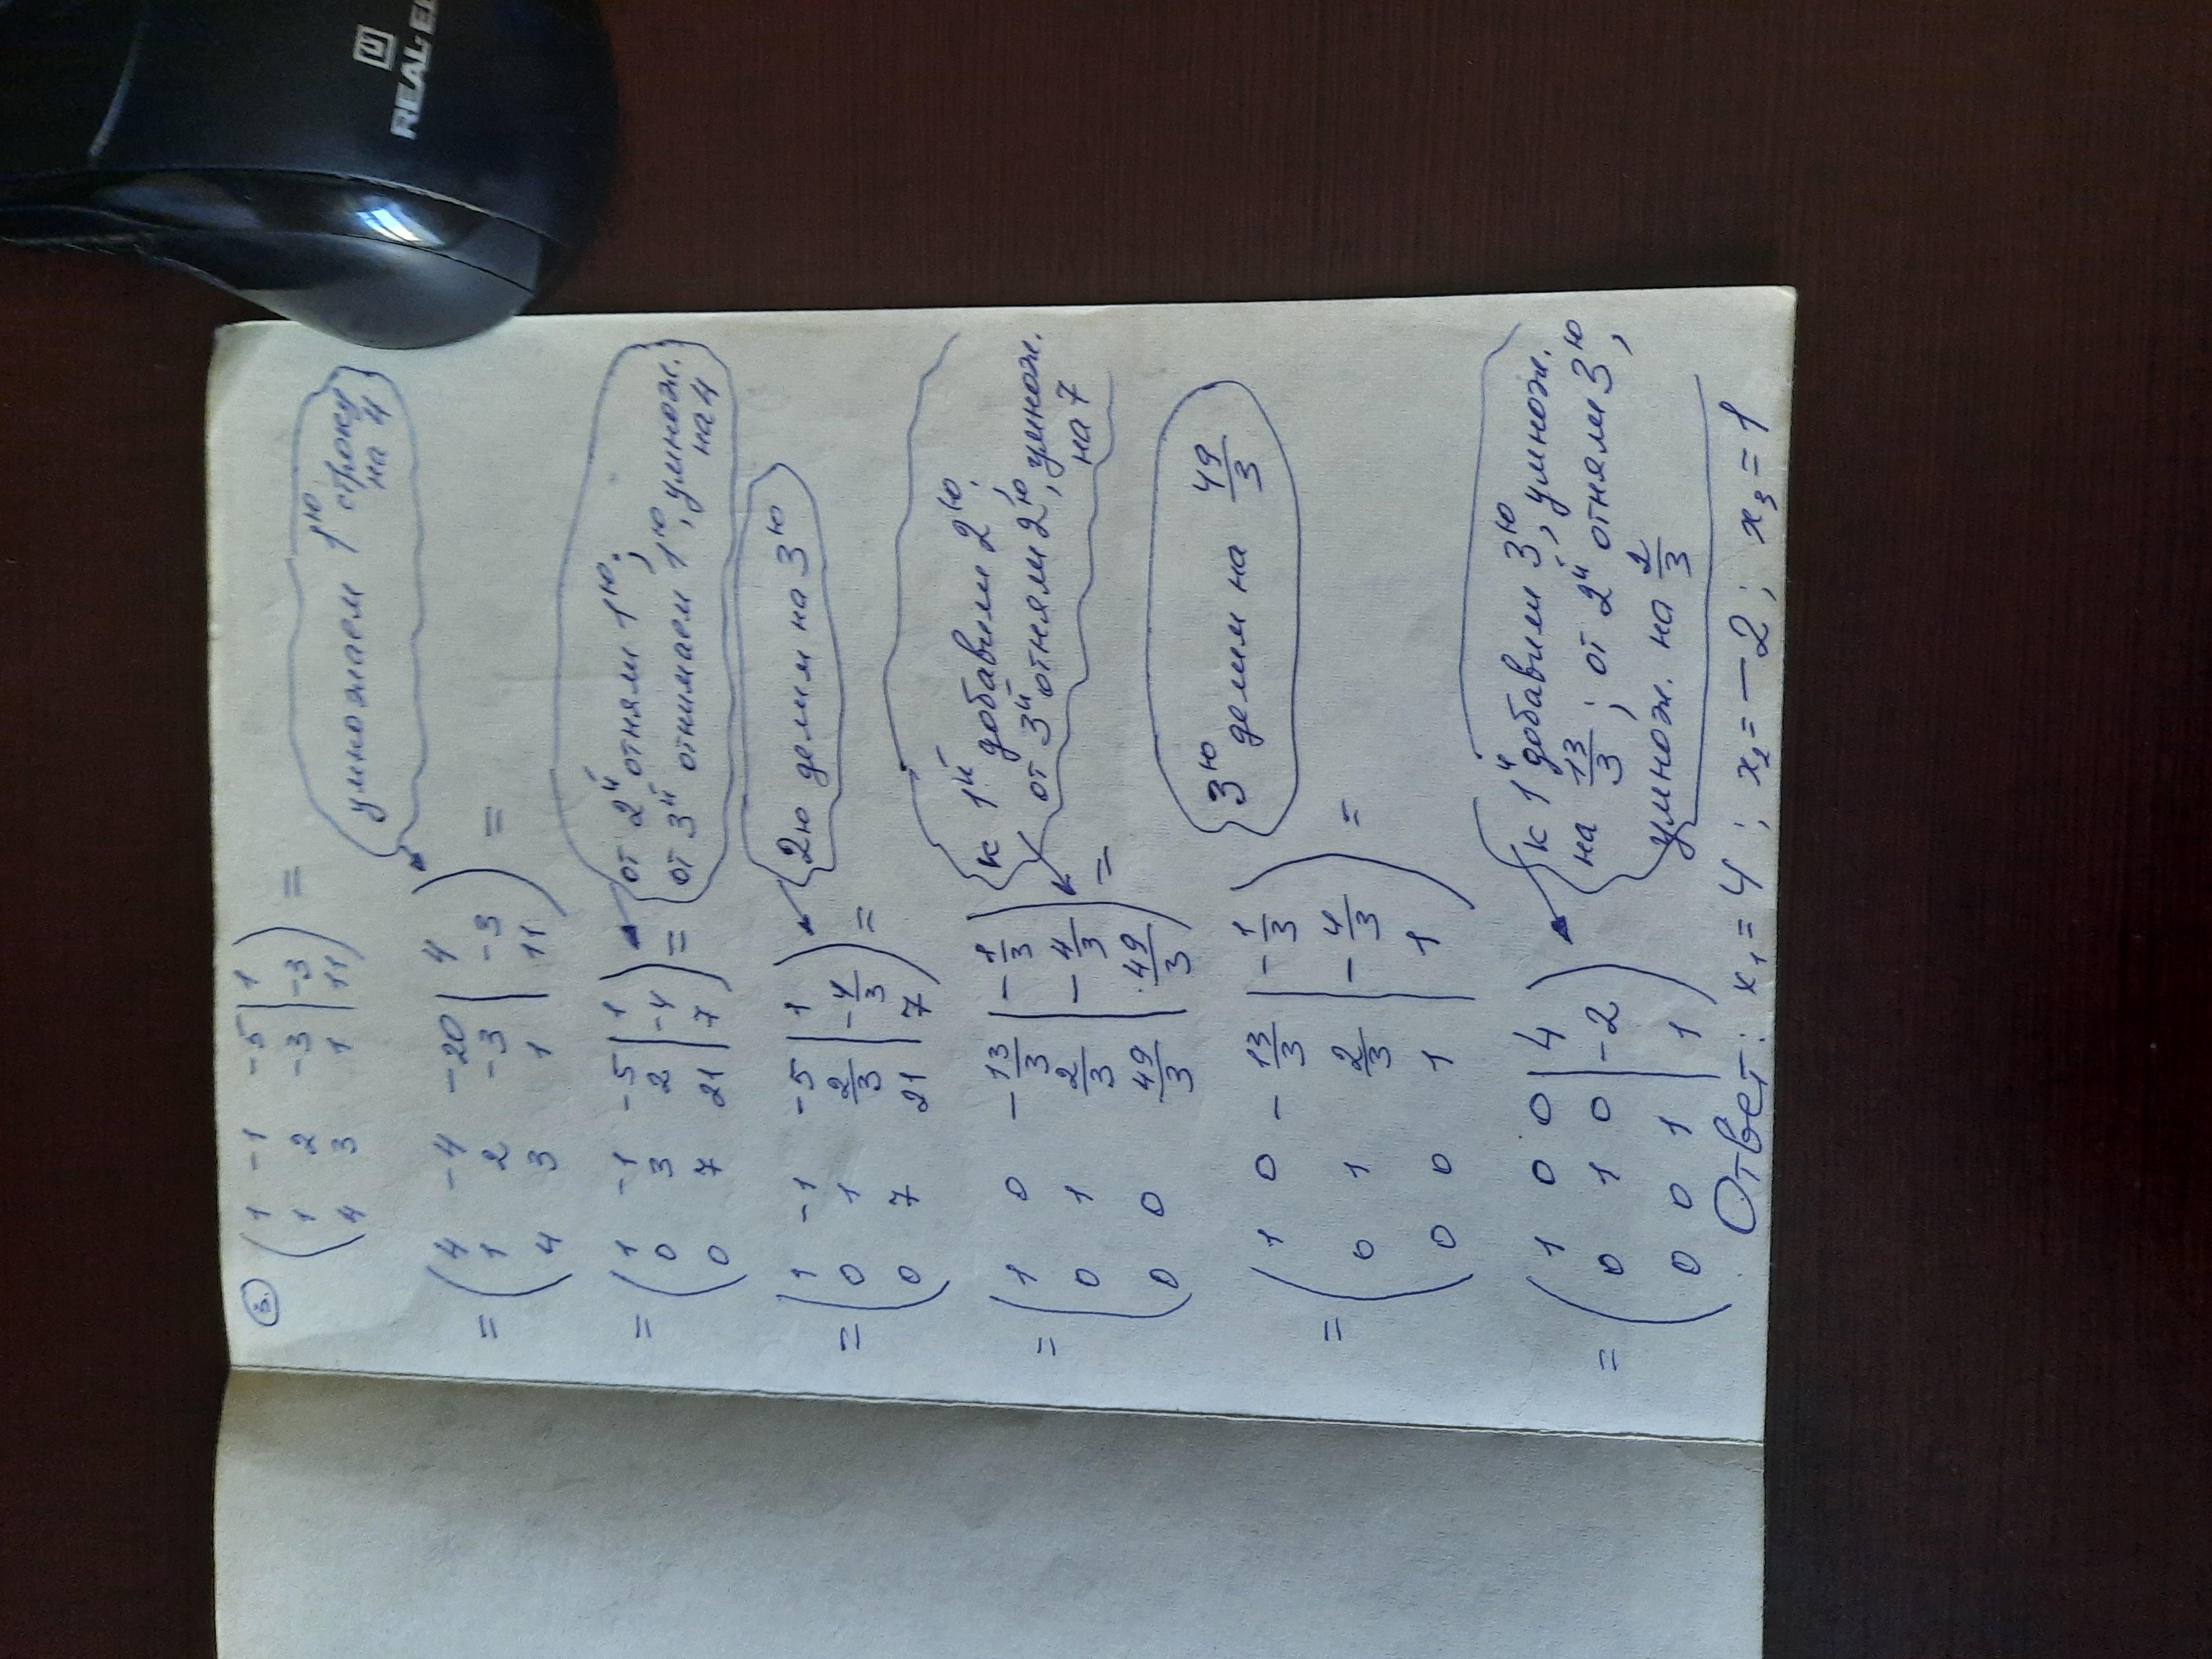 REAL-EL
3.
( 1 -1 -5 | 1 ) =
1 2 -3 | -3
4 3 1 | 11
умножаем 1ю строку
на 4
= ( 4 -4 -20 | 4 ) =
1 2 -3 | -3
4 3 1 | 11
от 2й отнями 1ю;
от 3й отнимаем 1ю, умнож.
на 4
= ( 1 -1 -5 | 1 ) =
0 3 2 | -4
0 7 21 | 7
2ю делим на 3ю
= ( 1 -1 -5 | 1 ) =
0 1 2/3 | -4/3
0 7 21 | 7
к 1й добавим 2ю;
от 3й отнями 2ю, умнож.
на 7
= ( 1 0 -13/3 | -1/3 ) =
0 1 2/3 | -4/3
0 0 49/3 | 49/3
3ю делим на 49/3
= ( 1 0 -13/3 | -1/3 ) =
0 1 2/3 | -4/3
0 0 1 | 1
к 1й добавим 3ю, умнож.
на 13/3; от 2й отнями 3ю,
умнож. на 2/3
= ( 1 0 0 | 4 )
0 1 0 | -2
0 0 1 | 1
Ответ: x₁ = 4; x₂ = -2; x₃ = 1